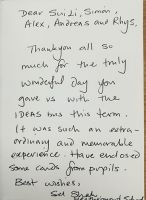 Dear Sui Li, Simon,
Alex, Andreas and Rhys,
Thankyou all so
much for the truly
wonderful day you
gave us with the
IDEAS bus this term.
It was such an extra-
ordinary and memorable
experience. Have enclosed
some cards from pupils.
Best wishes,